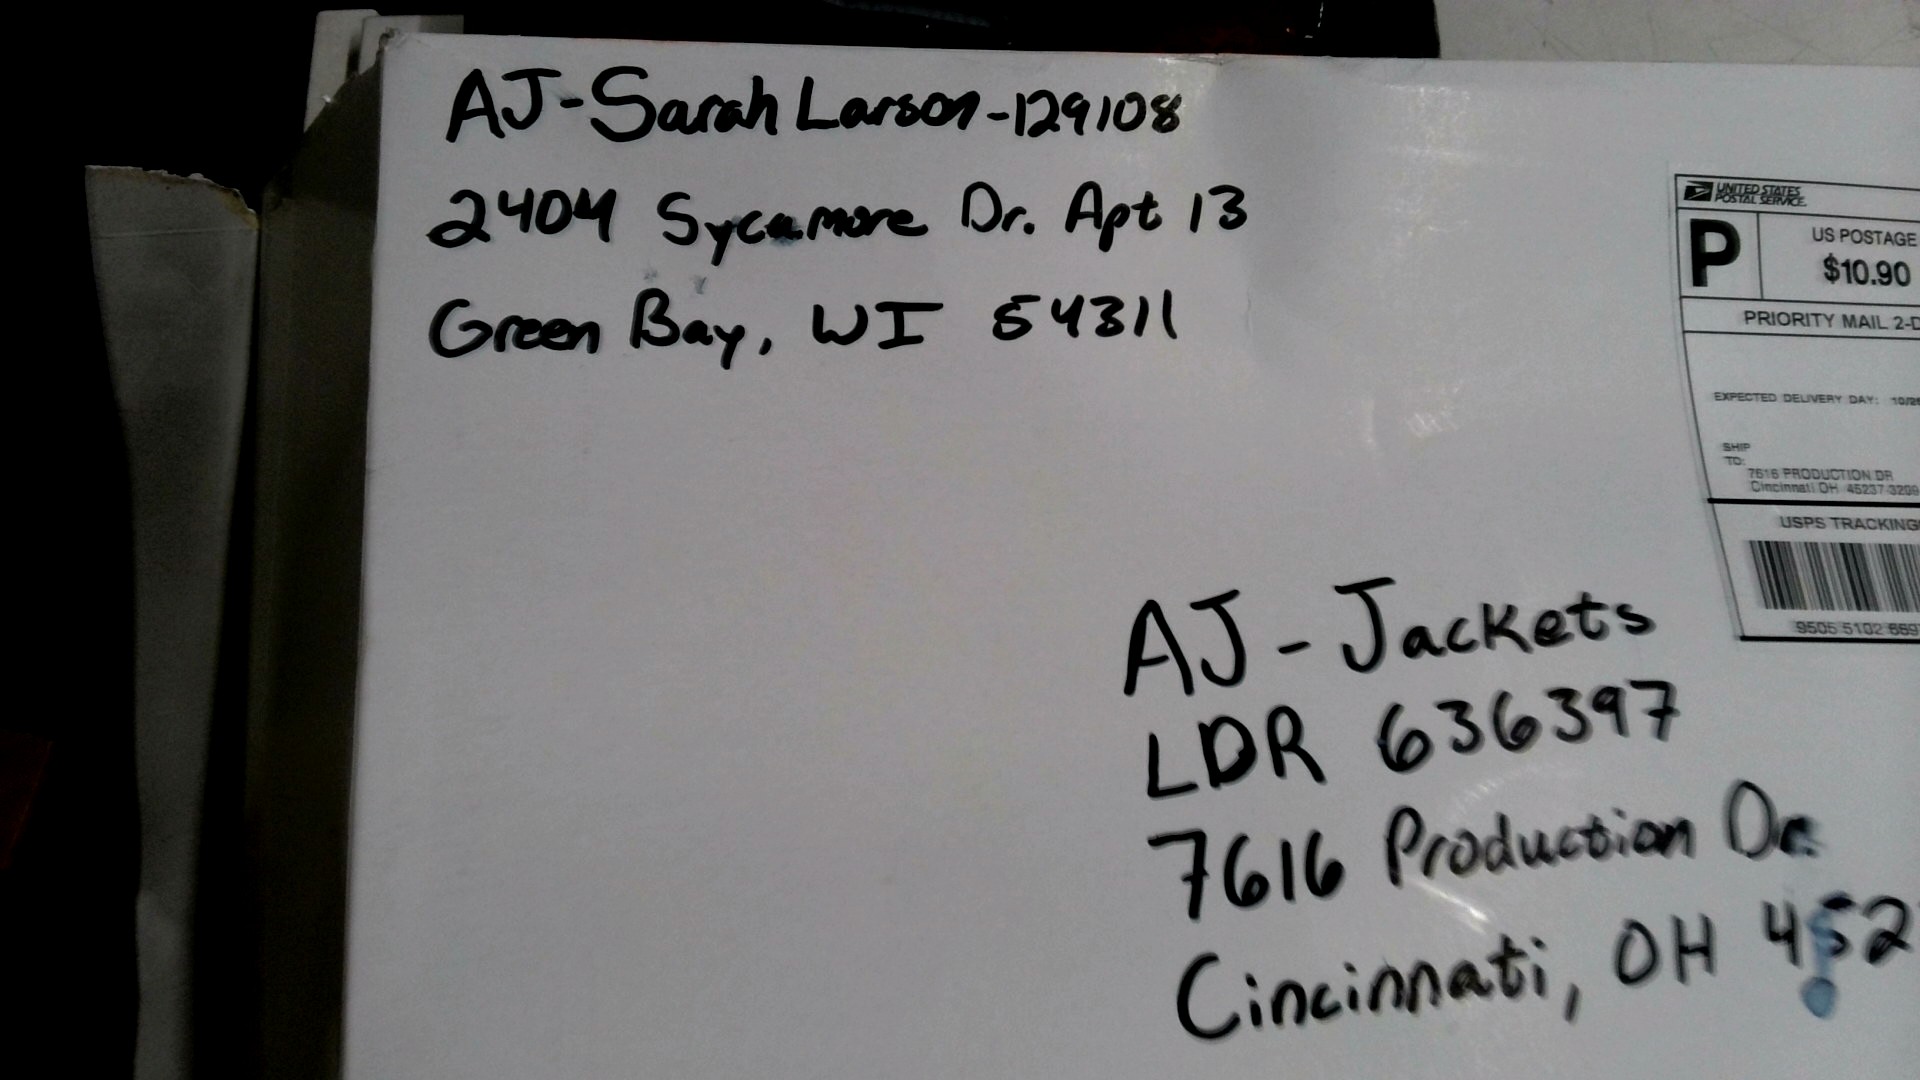 AJ-Sarah Larson-129108
2404 Sycamore Dr. Apt 13
Green Bay, WI 54311
UNITED STATES
POSTAL SERVICE.
P
US POSTAGE
$10.90
PRIORITY MAIL 2-D
EXPECTED DELIVERY DAY: 10/26
SHIP
TO:
7616 PRODUCTION DR
Cincinnati OH 45237-3209
USPS TRACKING
9505 5102 669
AJ-Jackets
LDR 636397
7616 Production Dr.
Cincinnati, OH 452